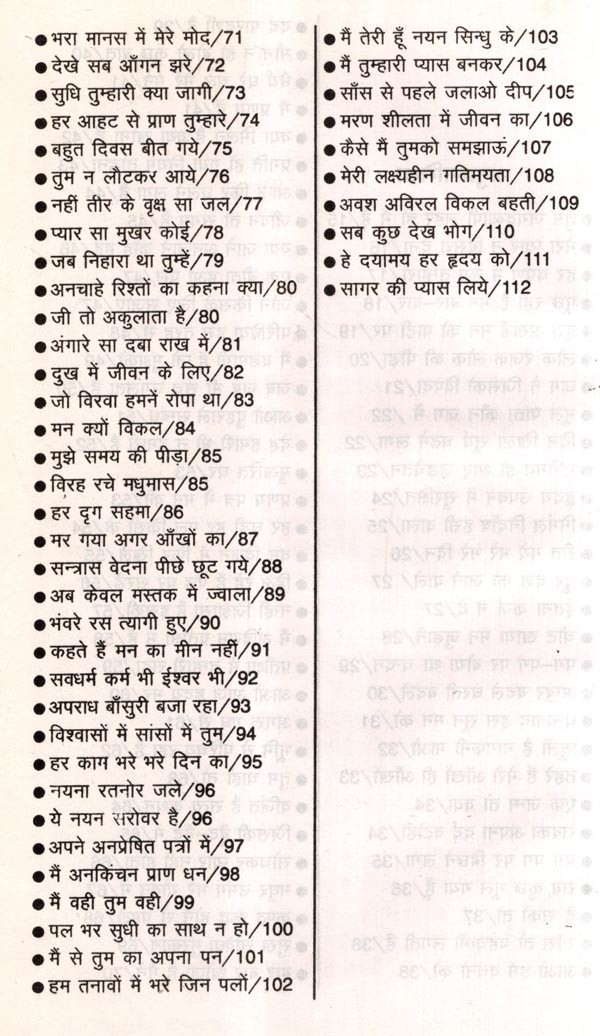 ● भरा मानस में मेरे मोद/71
● देखे सब आँगन झरे/72
● सुधि तुम्हारी क्या जागी/73
● हर आहट से प्राण तुम्हारे/74
● बहुत दिवस बीत गये/75
● तुम न लौटकर आये/76
● नहीं तीर के वृक्ष सा जल/77
● प्यार सा मुखर कोई/78
● जब निहारा था तुम्हें/79
● अनचाहे रिश्तों का कहना क्या/80
● जी तो अकुलाता है/80
● अंगारे सा दबा राख में/81
● दुख में जीवन के लिए/82
● जो विरवा हमनें रोपा था/83
● मन क्यों विकल/84
● मुझे समय की पीड़ा/85
● विरह रचे मधुमास/85
● हर दृग सहमा/86
● मर गया अगर आँखों का/87
● सन्त्रास वेदना पीछे छूट गये/88
● अब केवल मस्तक में ज्वाला/89
● भंवरे रस त्यागी हुए/90
● कहते हैं मन का मीन नहीं/91
● सवधर्म कर्म भी ईश्वर भी/92
● अपराध बाँसुरी बजा रहा/93
● विश्वासों में सांसों में तुम/94
● हर काग भरे भरे दिन का/95
● नयना रतनोर जले/96
● ये नयन सरोवर है/96
● अपने अनप्रेषित पत्रों में/97
● मैं अनकिंचन प्राण धन/98
● मैं वही तुम वही/99
● पल भर सुधी का साथ न हो/100
● मैं से तुम का अपना पन/101
● हम तनावों में भरे जिन पलों/102
● मैं तेरी हूँ नयन सिन्धु के/103
● मैं तुम्हारी प्यास बनकर/104
● साँस से पहले जलाओ दीप/105
● मरण शीलता में जीवन का/106
● कैसे मैं तुमको समझाऊं/107
● मेरी लक्ष्यहीन गतिमयता/108
● अवश अविरल विकल बहती/109
● सब कुछ देख भोग/110
● हे दयामय हर हृदय को/111
● सागर की प्यास लिये/112